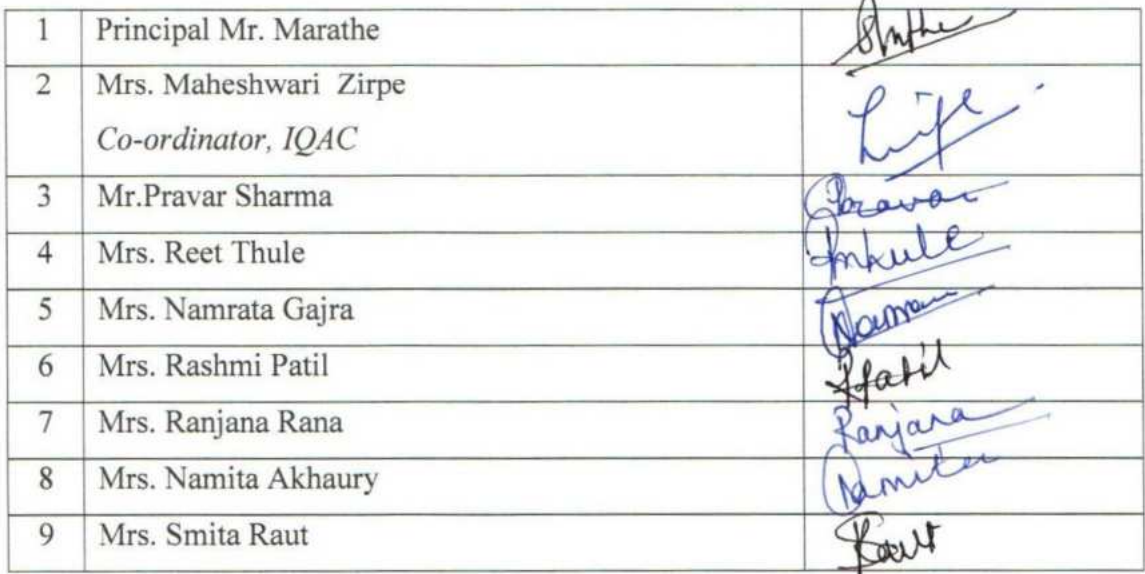 1 Principal Mr. Marathe
2 Mrs. Maheshwari Zirpe
Co-ordinator, IQAC
3 Mr.Pravar Sharma Pravar
4 Mrs. Reet Thule
5 Mrs. Namrata Gajra
6 Mrs. Rashmi Patil
7 Mrs. Ranjana Rana Ranjana
8 Mrs. Namita Akhaury Namita
9 Mrs. Smita Raut